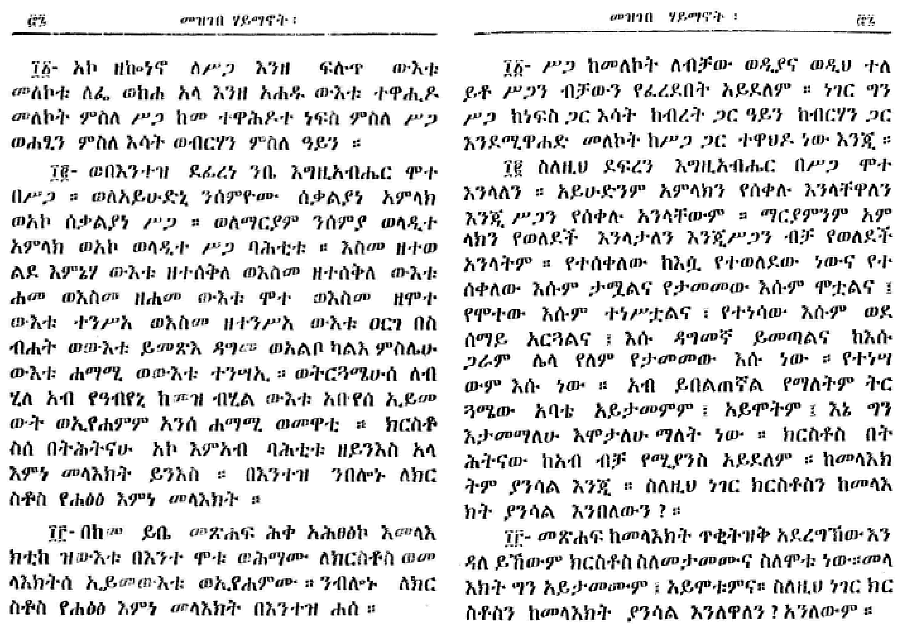 ፷፯ መዝገበ ሃይማኖት ፡
፲፩- አኮ ዘኰነኖ ለሥጋ እንዘ ፍሎጥ ውእቱ
መለኮቱ ለፌ ወከሐ አላ እንዘ አሐዱ ውእቱ ተዋሒዶ
መለኮት ምስለ ሥጋ ከመ ተዋሕዶተ ነፍስ ምስለ ሥጋ
ወሐፂን ምስለ እሳት ወብርሃን ምስለ ዓይን ።
፲፪- ወበእንተዝ ደፊረነ ንቤ እግዚአብሔር ሞተ
በሥጋ ። ወለአይሁድኒ ንሰምዮሙ ሰቃልያነ አምላክ
ወአኮ ሰቃልያነ ሥጋ ። ወለማርያም ንሰምያ ወላዲተ
አምላክ ወአኮ ወላዲተ ሥጋ ባሕቲቱ ። እስመ ዘተወ
ልደ እምኔሃ ውእቱ ዘተሰቅለ ወእስመ ዘተሰቅለ ውእቱ
ሐመ ወእስመ ዘሐመ ውእቱ ሞተ ወእስመ ዘሞተ
ውእቱ ተንሥአ ወእስመ ዘተንሥአ ውእቱ ዐርገ በስ
ብሐት ወውእቱ ይመጽእ ዳግመ ወአልቦ ካልእ ምስሌሁ
ውእቱ ሐማሚ ወውእቱ ተንሣኢ ። ወትርጓሜሁሰ ለብ
ሂለ አብ የዓብየኒ ከመዝ ብሂል ውእቱ አበየሰ ኢይመ
ውት ወኢየሐምም አንሰ ሐማሚ ወመዋቲ ። ክርስቶ
ስሰ በትሕትናሁ አኮ እምአብ ባሕቲቱ ዘይንእስ አላ
እምነ መላእክት ይንእስ ። በእንተዝ ንበሎኑ ለክር
ስቶስ የሐፅፅ እምነ መላእክት ።
፲፫- በከመ ይቤ መጽሐፍ ሕቀ አሕፀፅኮ እመላእ
ክቲከ ዝውእቱ በእንተ ሞቱ ወሕማሙ ለክርስቶስ ወመ
ላእክትሰ ኢይመውእቱ ወኢየሐምሙ ። ንብሎኑ ለክር
ስቶስ የሐፅፅ እምነ መላእክት በእንተዝ ሐሰ ።
መዝገበ ሃይማኖት ፡ ፷፯
፲፩- ሥጋ ከመለኮት ለብቻው ወዲያና ወዲህ ተለ
ይቶ ሥጋን ብቻውን የፈረደበት አይደለም ። ነገር ግን
ሥጋ ከነፍስ ጋር እሳት ከብረት ጋር ዓይን ከብርሃን ጋር
እንደሚዋሐድ መለኮት ከሥጋ ጋር ተዋህዶ ነው እንጂ ።
፲፪ ስለዚህ ደፍረን እግዚአብሔር በሥጋ ሞተ
እንላለን ። አይሁድንም አምላክን የሰቀሉ እንላቸዋለን
እንጂ ሥጋን የሰቀሉ አንላቸውም ። ማርያምንም አም
ላክን የወለደች እንላታለን እንጂሥጋን ብቻ የወለደች
አንላትም ። የተሰቀለው ከእሷ የተወለደው ነውና የተ
ሰቀለው እሱም ታሟልና የታመመው እሱም ሞቷልና ፤
የሞተው እሱም ተነሥቷልና ፤ የተነሳው እሱም ወደ
ሰማይ አርጓልና ፤ እሱ ዳግመኛ ይመጣልና ከእሱ
ጋራም ሌላ የለም የታመመው እሱ ነው ። የተነሣ
ውም እሱ ነው ። አብ ይበልጠኛል የማለትም ትር
ጓሜው አባቴ አይታመምም ፤ አይሞትም ፤ እኔ ግን
እታመማለሁ እሞታለሁ ማለት ነው ። ክርስቶስ በት
ሕትናው ከአብ ብቻ የሚያንስ አይደለም ። ከመላእክ
ትም ያንሳል እንጂ ። ስለዚህ ነገር ክርስቶስን ከመላእ
ክት ያንሳል እንበለውን ? ።
፲፫- መጽሐፍ ከመላእክት ጥቂትዝቅ አደረግኸው እን
ዳለ ይኸውም ክርስቶስ ስለመታመሙና ስለሞቱ ነው።መላ
እክት ግን አይታመሙም ፤ አይሞቱምና። ስለዚህ ነገር ክር
ስቶስን ከመላእክት ያንሳል እንለዋለን ? አንለውም ።